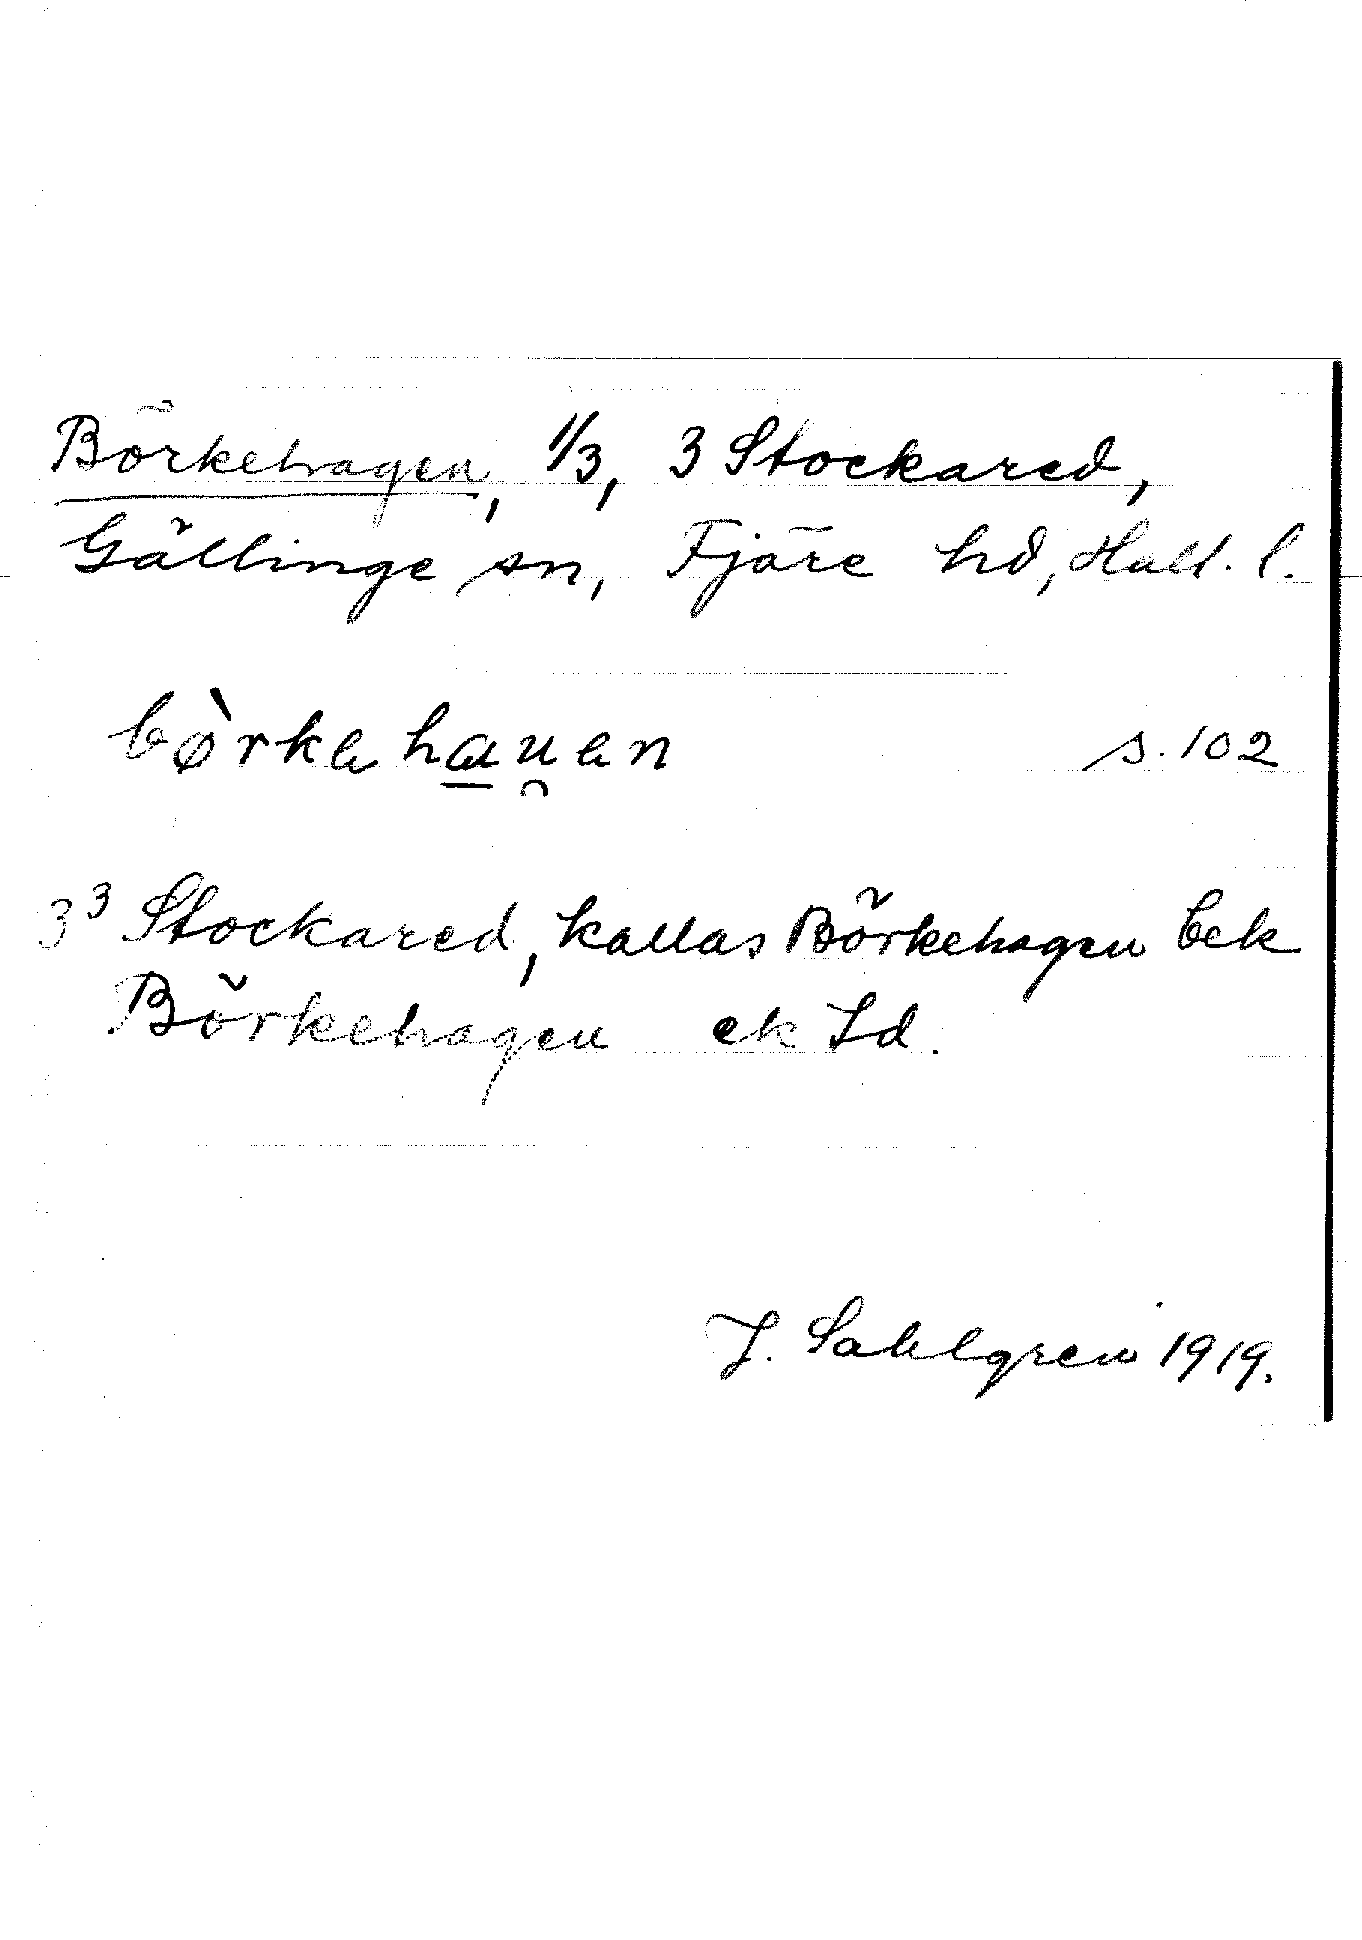 Börkehagen, 1/3, 3 Stockared,
Gällinge sn, Fjäre hd, Hall. l.
bø̀rkahau̯an s. 102
3³ Stockared, kallas Börkehagen bek
Börkehagen ek Jd.
J. Sahlgren 1919.